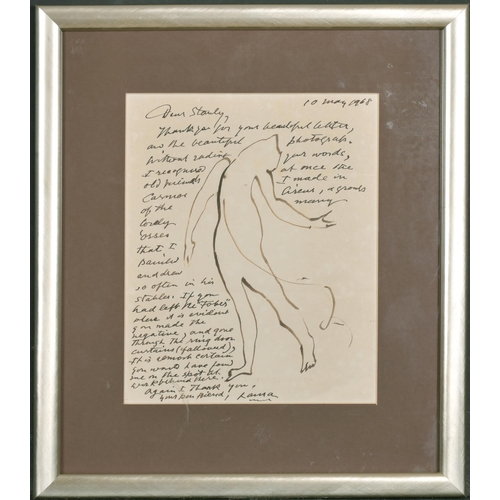 10 May 1968
Dear Stanly,
Thank you for your beautiful letter,
and the beautiful photograph.
Without reading your words,
I recognized at once the
old friends I made in
Carmos Circus, a group
of the many
lovely
osses
that I
painted
and drew
so often in his
stables. If you
had left the
where it is evident
you made the
negative, and gone
through the ring door
curtains (followed),
it is almost certain
you would have found
me on the spot at
work behind there.
Again I Thank you,
your friend, Laura